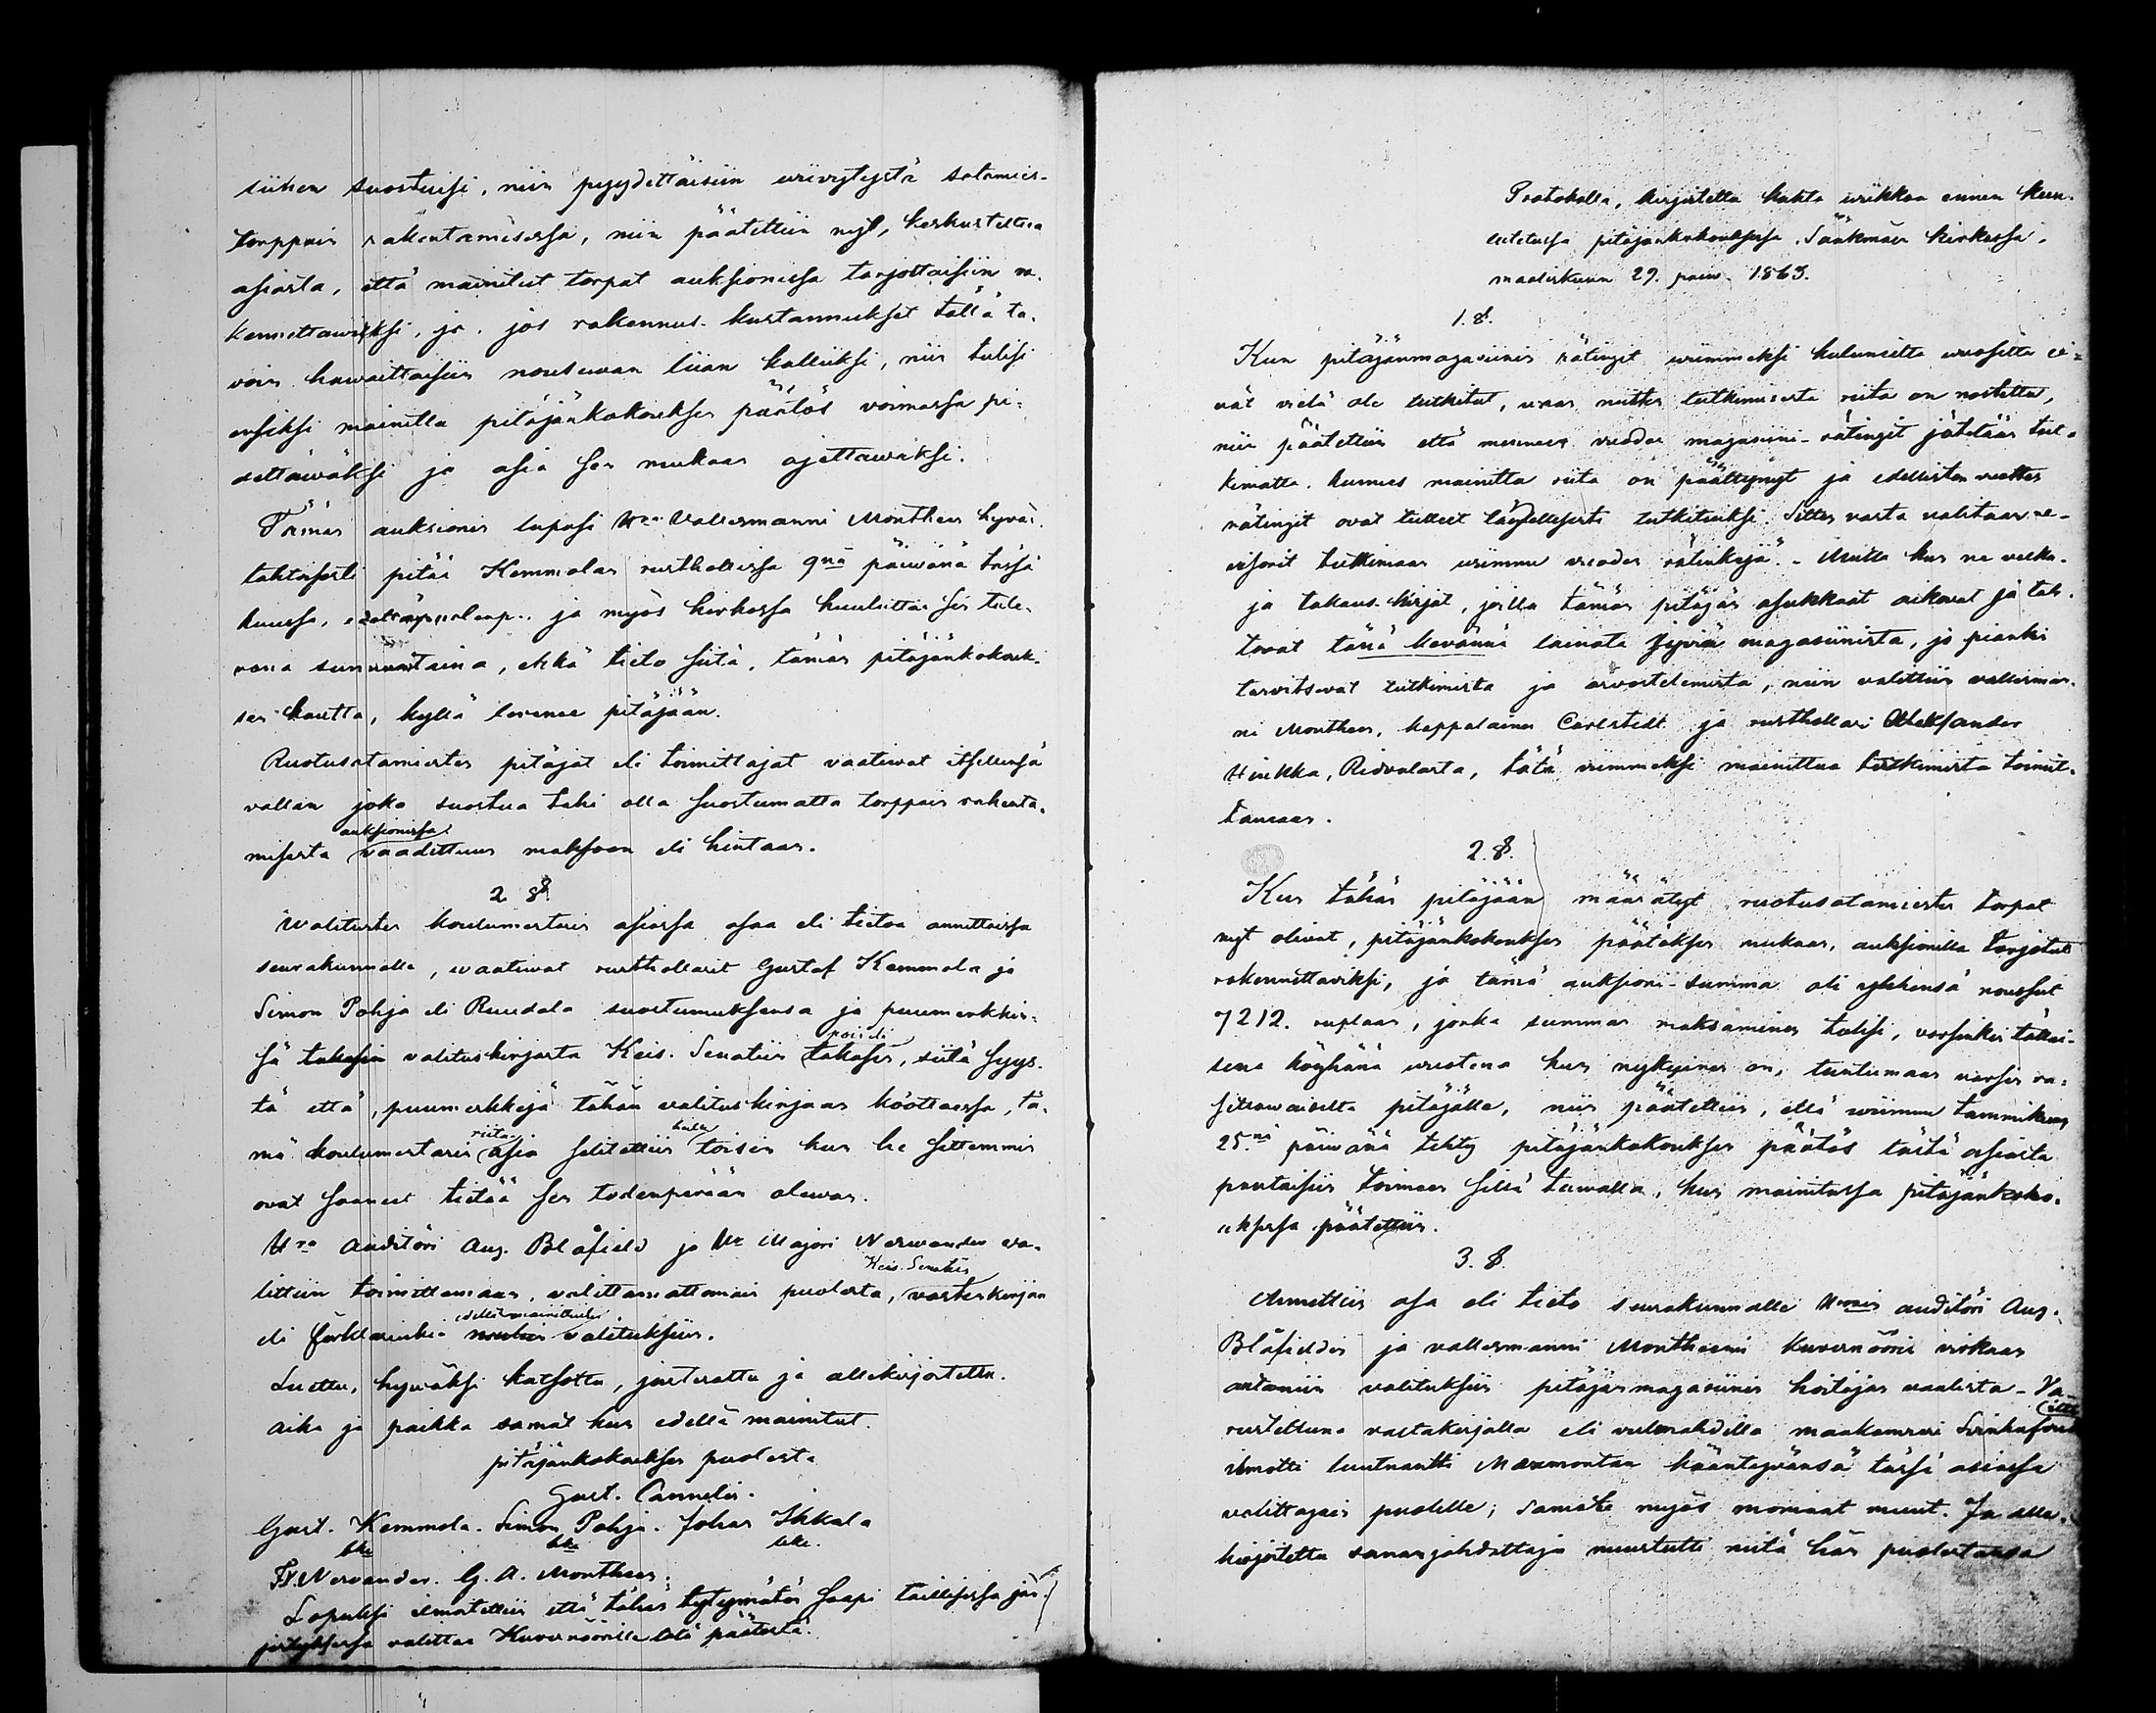 siihen suostuisi, niin pyydettäisiin wiivytystä sotamies-
torppain rakentamisessa, niin päätettiin nyt, keskusteltua
asiasta, että mainitut torpat auksionissa tarjottaisiin ra-
kennettawiksi, ja, jos rakennus-kustannukset tällä ta-
voin hawaittaisiin nousewan liian kalliiksi, niin tulisi
ensiksi mainitta pitäjänkokouksen päätös voimassa pi-
dettäwäksi ja asia sen mukaan ajettawaksi.
Tämän auksionin lupasi Hra Vallesmanni Montheen hyvän-
tahtosesti pitää Kemmolan rusthollissa 9nä päivänä tässä
kuussa, ja myös kirkossa kuuluttaa sen tule-
vana sunnuntaina, ehkä tieto siitä, tämän pitäjänkokouk-
sen kautta, kyllä levenee pitäjään.
Ruotusotamiesten pitäjät eli toimittajat vaatiwat itsellensä
vallan joko suostua tahi olla suostumatta torppain rakenta-
auksionissa
misesta vaadittuun maksoon eli hintaan.
2. §.
Walitusten koulumestarin asiassa osaa eli tietoa annettaissa
seurakunnalle, waatiwat rusthollarit Gustaf Kemmola ja
Simon Pohja eli Ruudola suostumuksensa ja puumerkkin-
pois eli
sä takasin valituskirjasta Keis. Senatiin takasin, siitä syys-
tä että, puumerkkejä tähän valituskirjaan koottaessa, tä-
riita heille
mä koulumestarin asia selitettiin toisin kun he sittemmin
ovat saaneet tietää sen todenperään olewan.
Hra Auditöri Aug. Blåfield ja Hr Majori Nerwander wa-
Keis. Senatiin
littiin toimittamaan, valittamattomain puolesta, vastuskirjan
edellämainittuihin
eli förklarinkia valituksiin.
Luettu, hywäksi katsottu, justerattu ja allekirjotettu.
Aika ja paikka samat kun edellä mainitut.
pitäjänkokouksen puolesta
Gust. Cannelin.
Gust. Kemmola. Simon Pohja. Johan Ikkala
bke bke bke.
Fr. Nervander. G. A. Montheen.
Lopuksi ilmotettiin että tähän tytymätön saapi laillisessa jär-
jestyksessä valittaa Kuvernöörille tätä päätöstä.
Protokolla, kirjotettu kahta wiikkoa ennen kuu-
lutetussa pitäjänkokouksessa Sääksmäen kirkossa,
maaliskuun 29. päiw. 1863.
1. §.
Kun pitäjänmagasiinin rätingit wiimmeksi kuluneilta wuosilta ei-
vät vielä ole tutkitut, waan niitten tutkimisesta riita on nostettu,
niin päätettiin että menneen vuoden magasiini-rätingit jätetään tut-
kimatta, kunnes mainittu riita on päättynyt ja edellisten vuotten
rätingit ovat tulleet täydellisesti tutkituiksi. Sitten vasta valitaan re-
visorit tutkimaan wiimme vuoden rätinkejä. - Mutta kun ne velka-
ja takaus-kirjat, joilla tämän pitäjän asukkaat aikovat ja tah-
tovat tänä kevännä lainata jyviä magasiinista, jo pianki
tarvitsevat tutkimista ja arvostelemista, niin valittiin vallesman-
ni Montheen, kappalainen Carlstedt ja rusthollari Aleksander
Hinkka, Ridvalasta, tätä viimmeksi mainittua tutkimista toimit-
tamaan.
2. §.
Kun tähän pitäjään määrätyt ruotusotamiesten torpat
nyt olivat, pitäjänkokouksen päätöksen mukaan, auksionilla tarjotut
rakennettaviksi, ja tämä auksioni-summa oli yhteensä noussut
7212. ruplaan, jonka summan maksaminen tulisi, varsinkin tällai-
sena köyhänä wuotena kun nykyinen on, tuntumaan varsin ra-
sittawaiselta pitäjälle, niin päätettiin, että wiimme tammikuun
25nä päiwänä tehty pitäjänkokouksen päätös tästä asiasta
pantaisiin toimeen sillä tawalla, kun mainitussa pitäjänkoko-
uksessa päätettiin.
3. §.
Annettiin osa eli tieto seurakunnalle Herrain auditöri Aug.
Blåfieldin ja vallesmanni Montheenin kuvernöörin virkaan
antamiin valituksiin pitäjänmagasiinin hoitajan vaalista - Va-
rustettuna vastakirjalla eli vulmahdilla maakamreri Svinhufvud
ilmotti luutnantti Maxmontan kääntyvänsä tässä asiassa
valittajain puolelle; samate myös moniaat muut. Ja alle-
kirjotettu sanansaatattaja muistutti niitä hän puolestansa